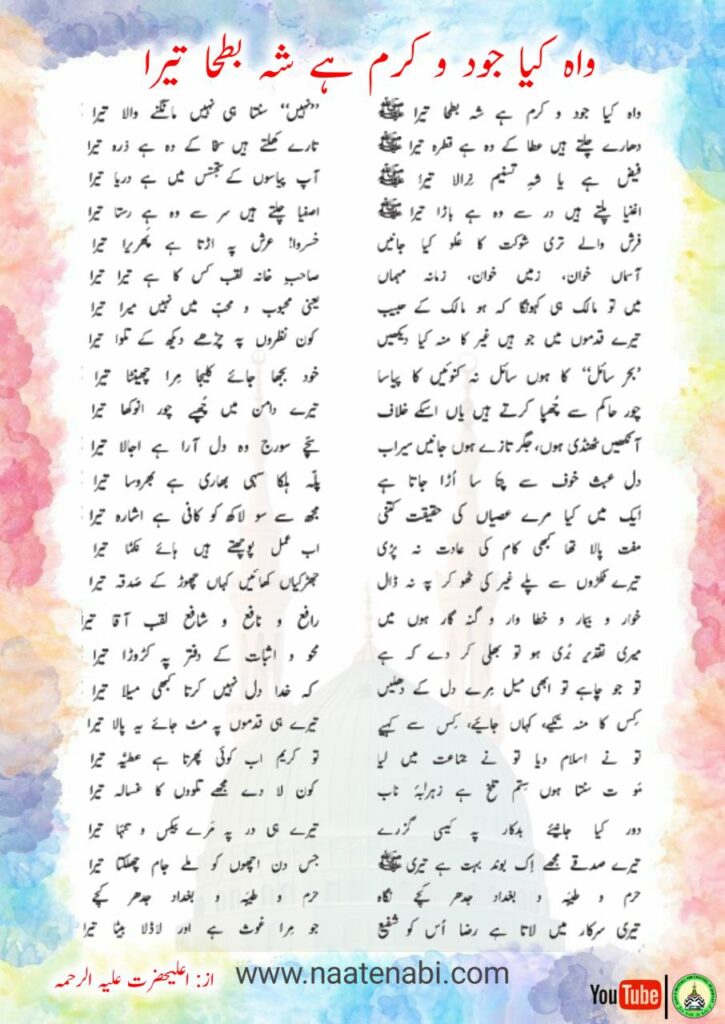 واہ کیا جود و کرم ہے شہ بطحا تیرا
واہ کیا جود و کرم ہے شہ بطحا تیرا ﷺ ”نہیں“ سنتا ہی نہیں مانگنے والا تیرا
دھارے چلتے ہیں عطا کے وہ ہے قطرہ تیرا ﷺ تارے کھلتے ہیں سخا کے وہ ہے ذرہ تیرا
فیض ہے یا شہِ تسنیم نِرالا تیرا ﷺ آپ پیاسوں کے تجسّس میں ہے دریا تیرا
اغنیا پلتے ہیں در سے وہ ہے باڑا تیرا ﷺ اصفیا چلتے ہیں سر سے وہ ہے رستا تیرا
فرش والے تری شوکت کا عُلو کیا جانیں خسروا! عرش پہ اڑتا ہے پھریرا تیرا
آسماں خوان، زمیں خوان، زمانہ مہماں صاحبِ خانہ لقب کس کا ہے تیرا تیرا
میں تو مالک ہی کہونگا کہ ہو مالک کے حبیب یعنی محبوب و محبّ میں نہیں میرا تیرا
تیرے قدموں میں جو ہیں غیر کا منہ کیا دیکھیں کون نظروں پہ چڑھے دیکھ کے تلوا تیرا
”بحرِ سائل“ کا ہوں سائل نہ کنوئیں کا پیاسا خود بجھا جائے کلیجا مِرا چھینٹا تیرا
چور حاکم سے چُھپا کرتے ہیں یاں اسکے خلاف تیرے دامن میں چُھپے چور انوکھا تیرا
آنکھیں ٹھنڈی ہوں، جگر تازے ہوں جانیں سیراب سچّے سورج وہ دل آرا ہے اجالا تیرا
دل عبث خوف سے پتّا سا اُڑا جاتا ہے پلّہ ہلکا سہی بھاری ہے بھروسا تیرا
ایک میں کیا مرے عصیاں کی حقیقت کتنی مجھ سے سو لاکھ کو کافی ہے اشارہ تیرا
مفت پالا تھا کبھی کام کی عادت نہ پڑی اب عمل پوچھتے ہیں ہائے نکمّا تیرا
تیرے ٹکڑوں سے پلے غیر کی ٹھوکر پہ نہ ڈال جھڑکیاں کھائیں کہاں چھوڑ کے صدقہ تیرا
خوار و بیمار و خطا وار و گنہ گار ہوں میں رافع و نافع و شافع لقب آقا تیرا
میری تقدیر بُری ہو تو بھلی کر دے کہ ہے محو و اثبات کے دفتر پہ کڑوڑا تیرا
تو جو چاہے تو ابھی میل مِرے دل کے دھلیں کہ خدا دل نہیں کرتا کبھی میلا تیرا
کس کا منہ تکیے، کہاں جائیے، کس سے کہیے تیرے ہی قدموں پہ مٹ جائے یہ پالا تیرا
تو نے اسلام دیا تو نے جماعت میں لیا تو کریم اب کوئی پھرتا ہے عطیّہ تیرا
مَو ت سنتا ہوں سِتم تلخ ہے زہرابۂ ناب کون لا دے مجھے تلووں کا غسالہ تیرا
دور کیا جانیئے بدکار پہ کیسی گزرے تیرے ہی در پہ مَرے بیکس و تنہا تیرا
تیرے صدقے مجھے اِک بوند بہت ہے تیری ﷺ جس دن اچھوں کو ملے جام چھلکتا تیرا
حرم و طیبہ و بغداد جدھر کیجے نگاہ حرم و طیبہ و بغداد جدھر کیجے
تیری سرکار میں لاتا ہے رضا اُس کو شفیع جو مِرا غوث ہے اور لاڈلا بیٹا تیرا
از: اعلیحضرت علیہ الرحمہ
www.naatenabi.com
YouTube